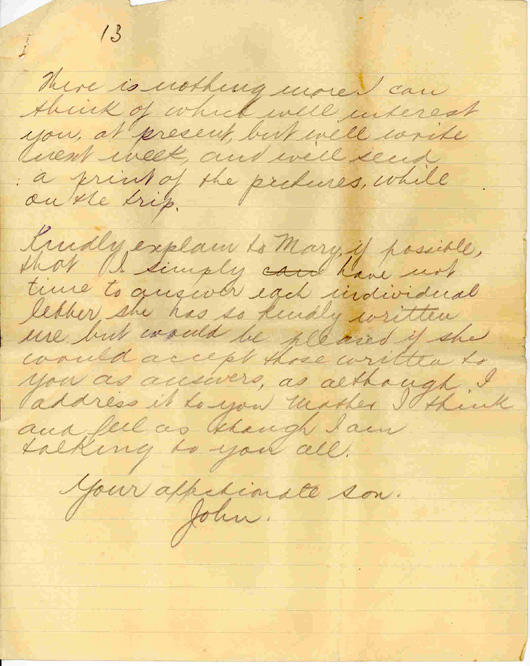 13
There is nothing more I can
think of which will interest
you, at present, but will write
next week, and will send
a print of the pictures, while
on the trip.
Kindly explain to Mary, if possible,
that I simply can have not
time to answer each individual
letter, she has so kindly written
me but would be pleased if she
would accept those written to
you as answers, as although I
address it to you Mother I think
and feel as though I am
talking to you all.
Your affectionate son.
John.